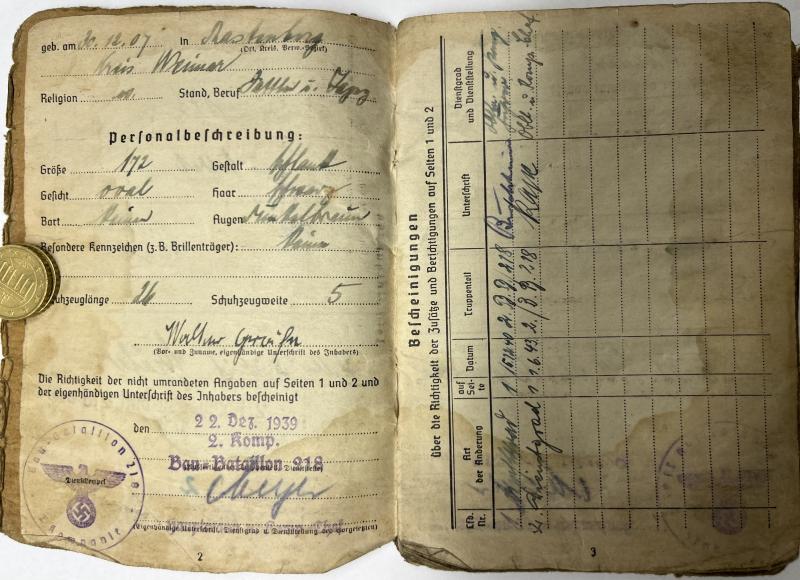 geb. am 30.12.07 in Rastenberg
(Ort, Kreis, Verw.-Bezirk)
Kreis Weimar
Religion ev. Stand, Beruf Sattler u.
Personalbeschreibung:
Größe 172 Gestalt schlank
Gesicht oval Haar schwarz
Bart keinen Augen dunkelbraun
Besondere Kennzeichen (z. B. Brillenträger): keine
Schuhzeuglänge 26 Schuhzeugweite 5
Walter
(Vor- und Zuname, eigenhändige Unterschrift des Inhabers)
Die Richtigkeit der nicht umrandeten Angaben auf Seiten 1 und 2 und
der eigenhändigen Unterschrift des Inhabers bescheinigt
den 22. Dez. 1939
2. Komp.
Bau-Bataillon 218
Bau-Bataillon 218
2. Kompanie
Dienststempel
(Eigenhändige Unterschrift, Dienstgrad u. Dienststellung des Vorgesetzten)
2
Bescheinigungen
über die Richtigkeit der Zusätze und Berichtigungen auf Seiten 1 und 2
Lfd. Nr. Art der Änderung auf Seite Datum Truppenteil Unterschrift Dienstgrad und Dienststellung
1 1
2 Dienstgrad 1 1.6.43 2./B.P.218 Olt. u. Komp. Chef
3